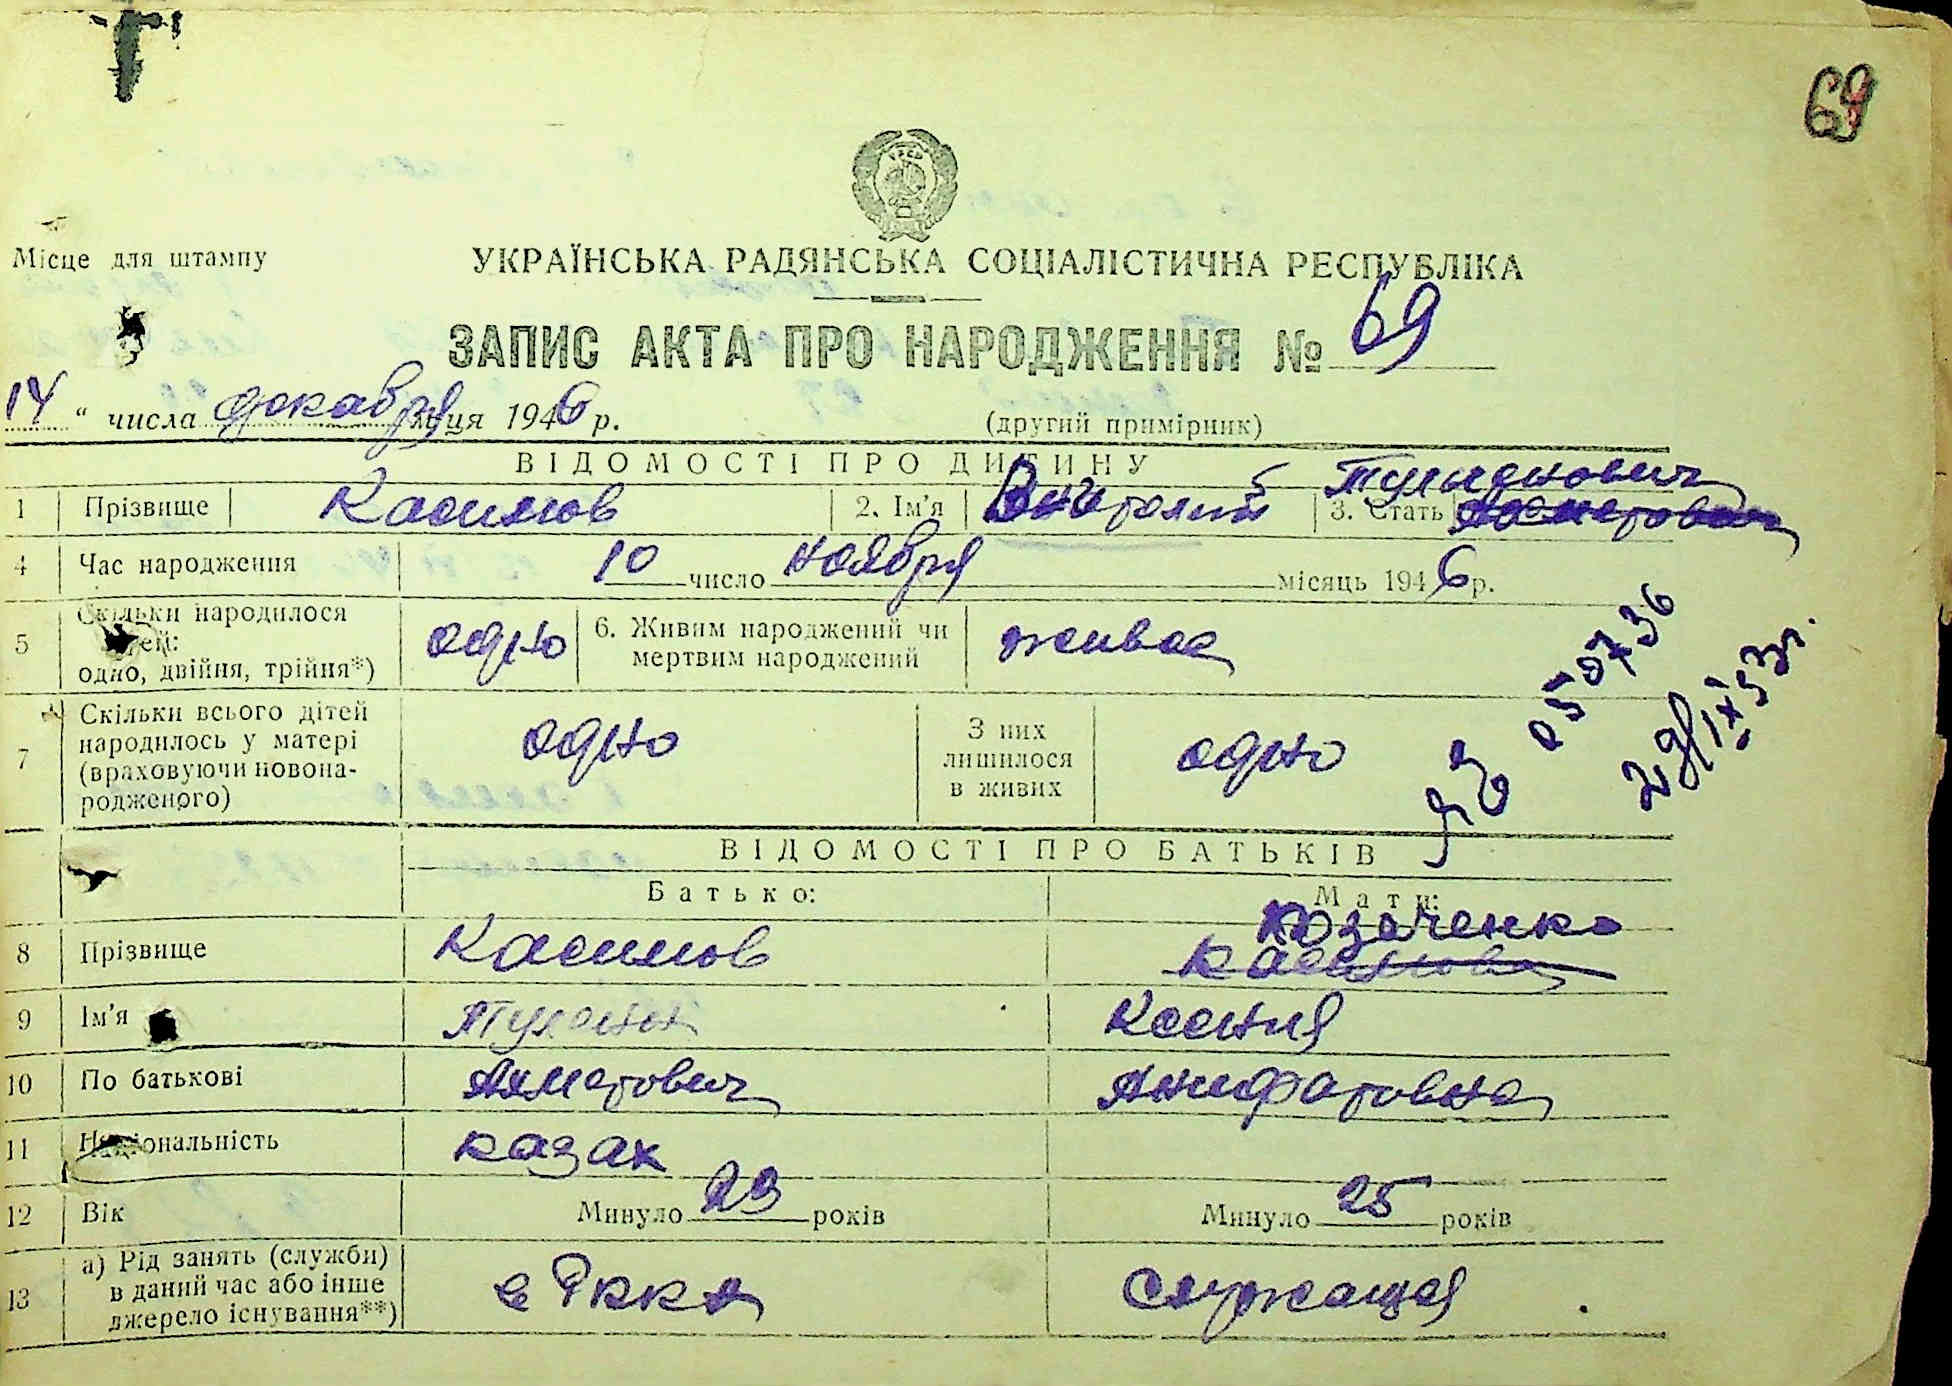 69
Місце для штампу
УКРАЇНСЬКА РАДЯНСЬКА СОЦІАЛІСТИЧНА РЕСПУБЛІКА
ЗАПИС АКТА ПРО НАРОДЖЕННЯ № 69
14 " числа декабря м-ця 1946 р.
(другий примірник)
ВІДОМОСТІ ПРО ДИТИНУ
1 Прізвище Касимов 2. Ім'я Анатолий 3. Стать
4 Час народження 10 число ноября місяць 1946 р.
5 Скільки народилося дітей: одно, двійня, трійня*) одно 6. Живим народжений чи мертвим народжений живая
7 Скільки всього дітей народилось у матері (враховуючи новонародженого) одно З них лишилося в живих одно
050736
29/IX 53г.
ВІДОМОСТІ ПРО БАТЬКІВ
Батько: Мати:
Козаченко
8 Прізвище Касимов Касимова
9 Ім'я Ксения
10 По батькові Ахметович Анифатовна
11 Національність казах
12 Вік Минуло 23 років Минуло 25 років
13 а) Рід занять (служби) в даний час або інше джерело існування**) в РККА Служащая